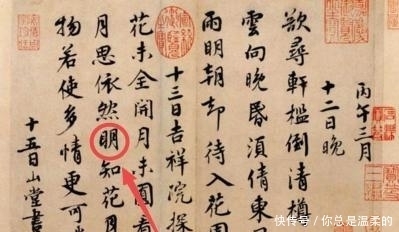 丙午三月
十二日晚
欲尋軒檻倒清樽
雲向晚昏須倩東
雨明朝却待入花園
十三日吉祥院探
花未全開月未圓看
月思依然明知花月
物若使多情更可
十五日山堂書
快传号/你总是温柔的